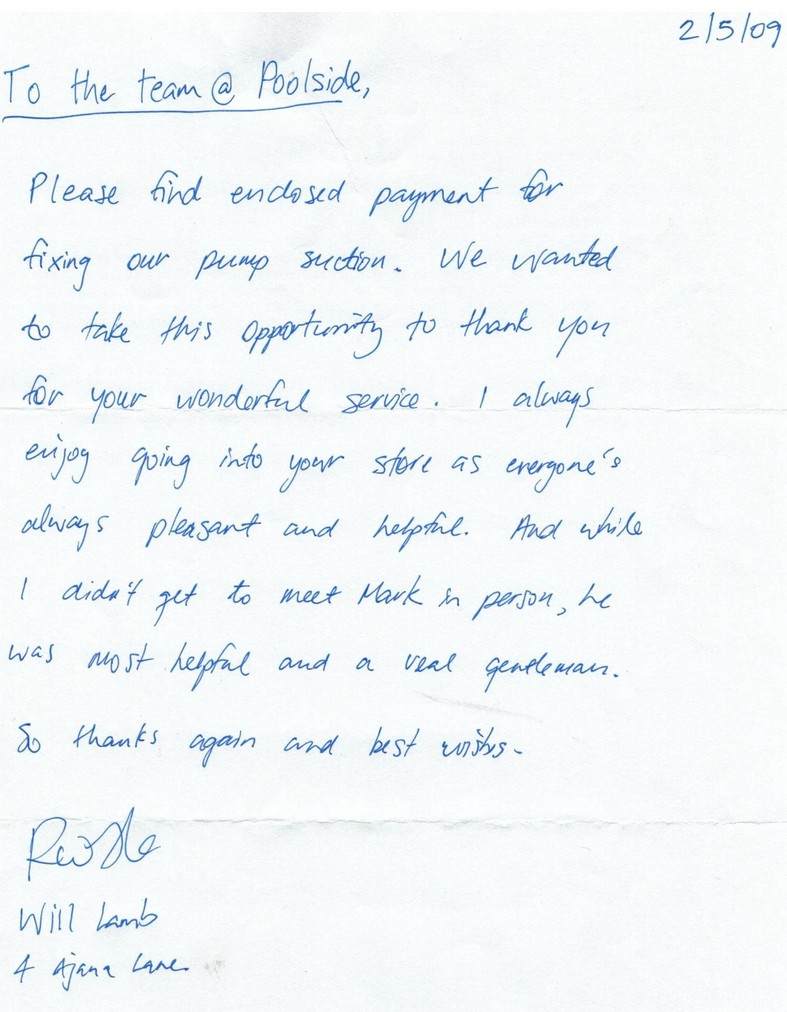 2/5/09
To the team @ Poolside,
Please find enclosed payment for
fixing our pump suction. We wanted
to take this opportunity to thank you
for your wonderful service. I always
enjoy going into your store as everyone's
always pleasant and helpful. And while
I didn't get to meet Mark in person, he
was most helpful and a real gentleman.
So thanks again and best wishes.
Will Lamb
4 Ajana Lane.